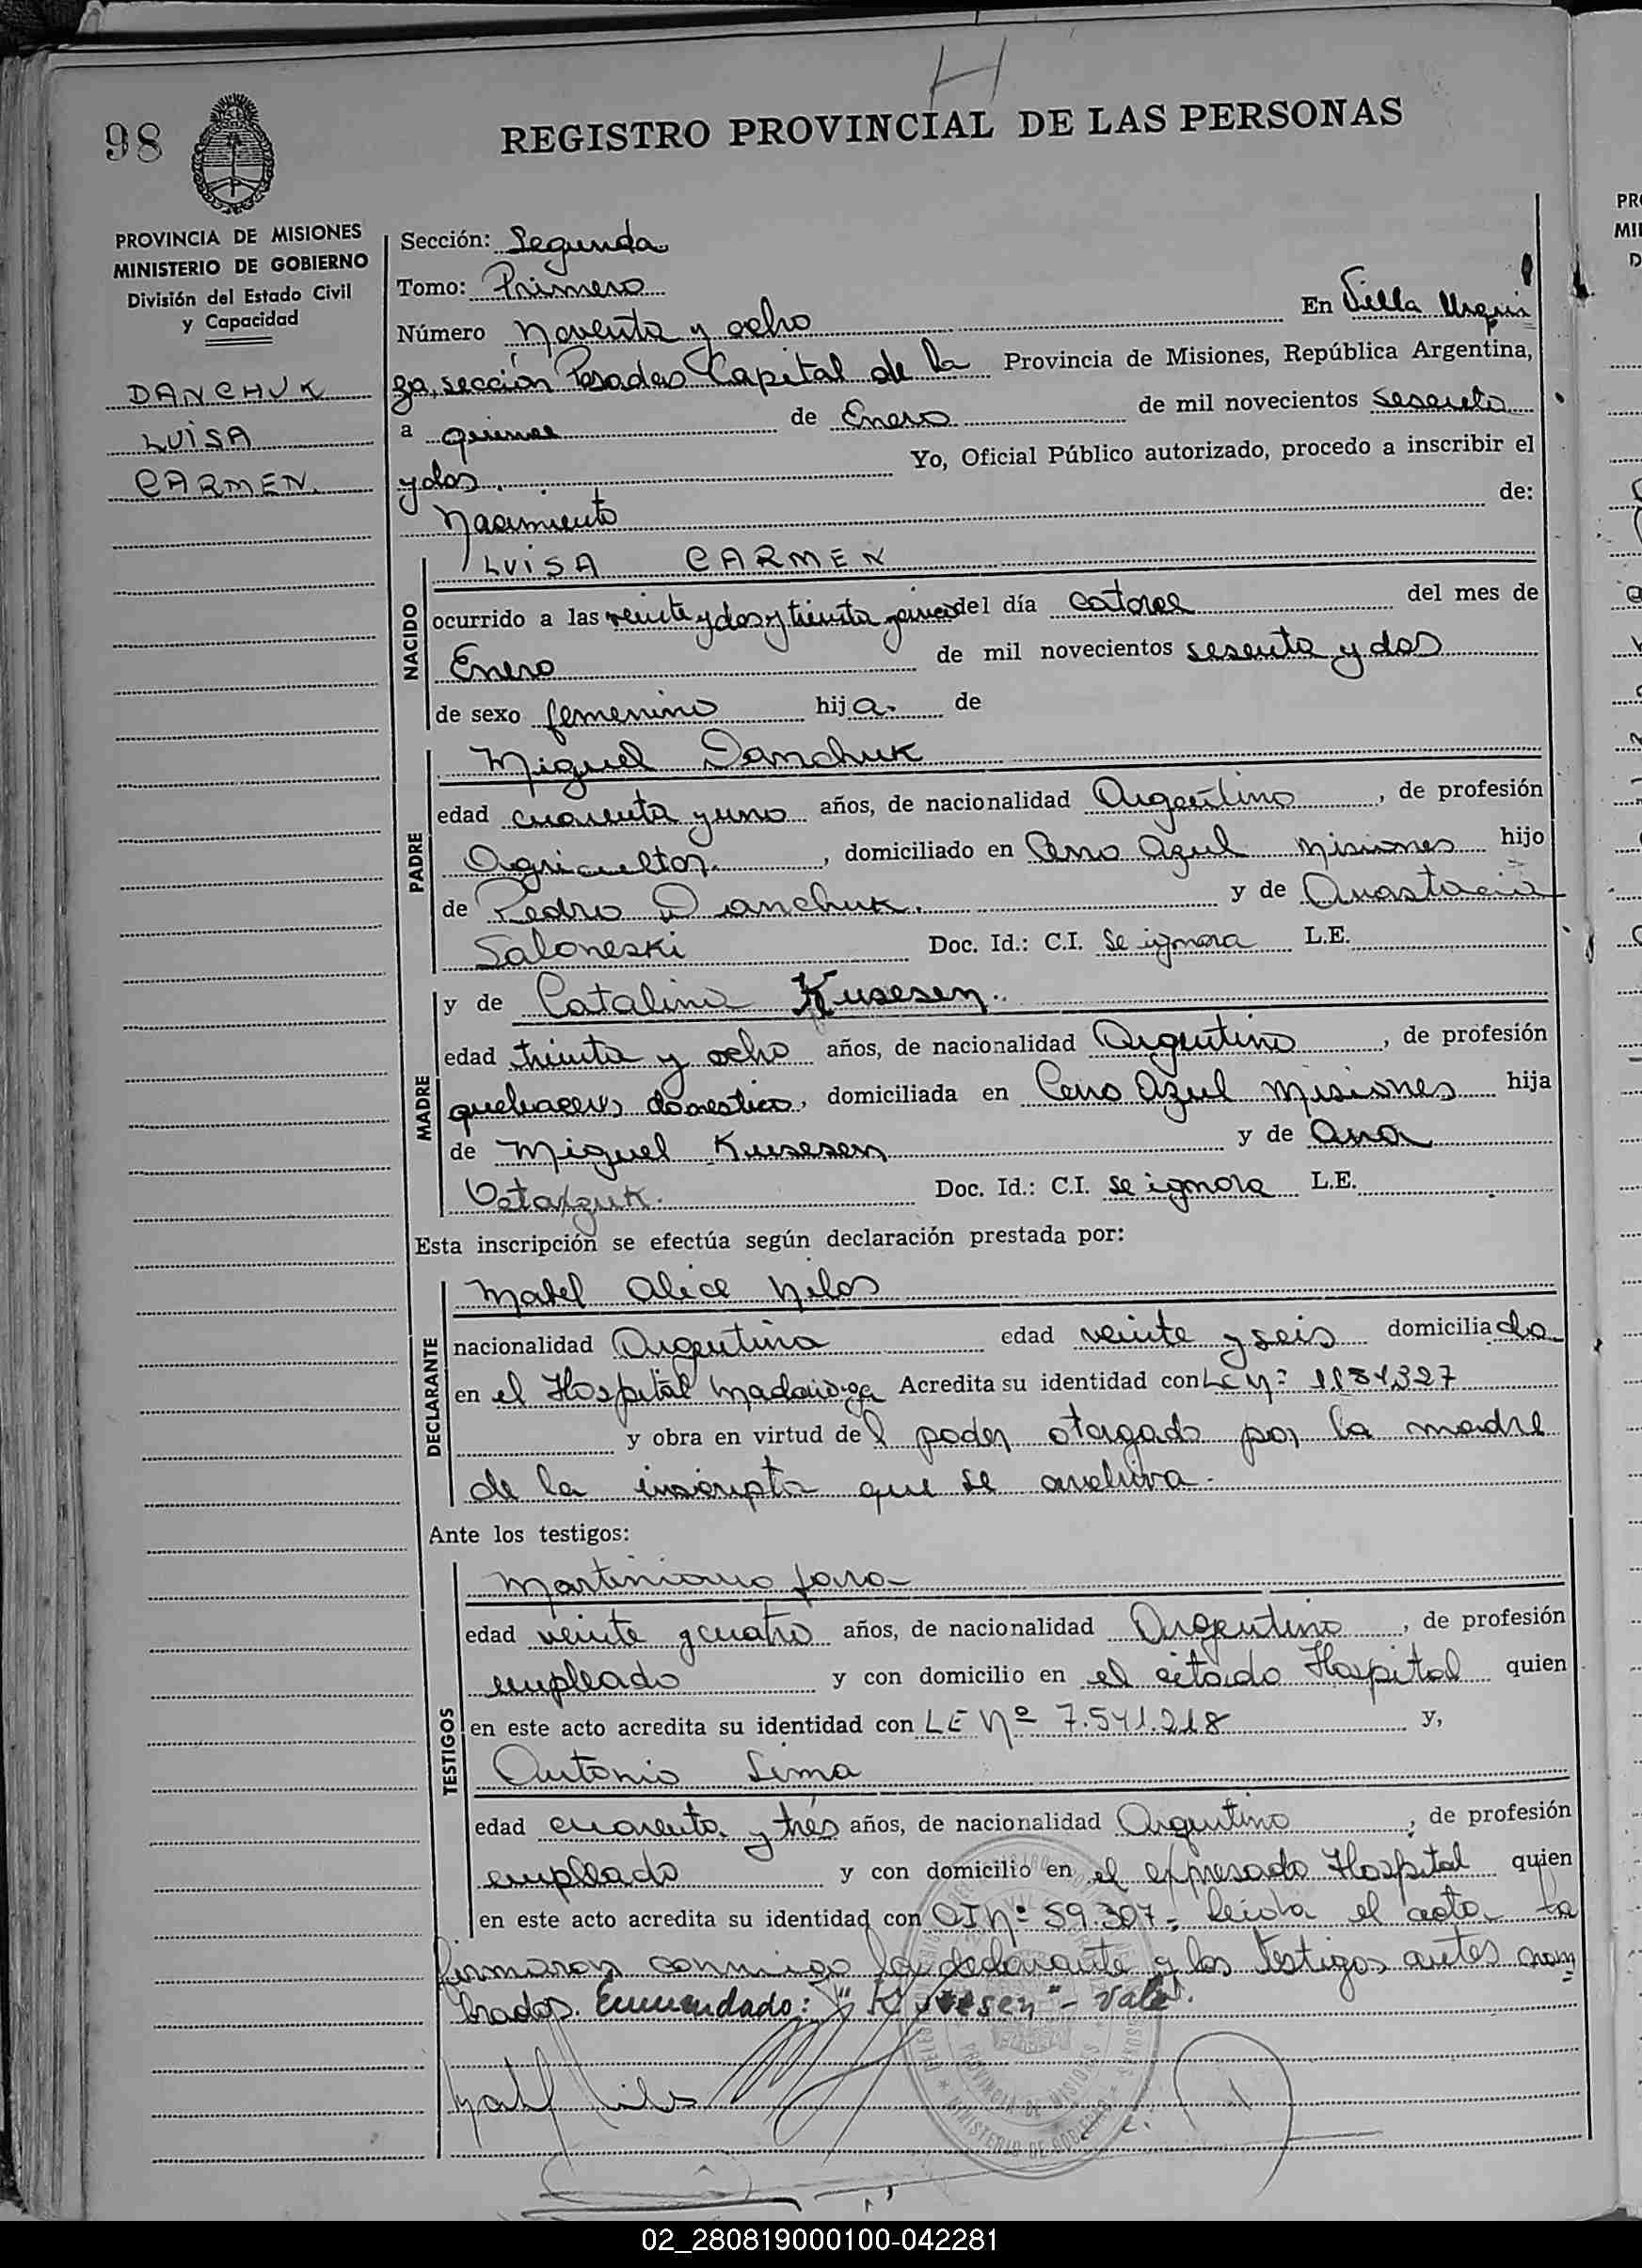 H
98
REGISTRO PROVINCIAL DE LAS PERSONAS
PROVINCIA DE MISIONES
MINISTERIO DE GOBIERNO
División del Estado Civil
y Capacidad
DANCHUK
LUISA
CARMEN.
Sección: Segunda
Tomo: Primero
Número Noventa y ocho En Villa Urqui
za, sección Posadas Capital de la Provincia de Misiones, República Argentina,
a quince de Enero de mil novecientos sesenta
y dos. Yo, Oficial Público autorizado, procedo a inscribir el
Nacimiento de:
NACIDO
LUISA CARMEN
ocurrido a las veinte y dos y treinta y cinco del día catorce del mes de
Enero de mil novecientos sesenta y dos
de sexo femenino hija. de
PADRE
Miguel Danchuk
edad cuarenta y uno años, de nacionalidad Argentino, de profesión
Agricultor, domiciliado en Cerro Azul Misiones hijo
de Pedro Danchuk. y de Anastacia
Saloneski Doc. Id.: C.I. Se ignora L.E.
MADRE
y de Catalina Kusesen.
edad treinta y ocho años, de nacionalidad Argentino, de profesión
quehaceres domestico, domiciliada en Cerro Azul Misiones hija
de Miguel Kusesen y de Ana
Doc. Id.: C.I. Se ignora L.E.
Esta inscripción se efectúa según declaración prestada por:
DECLARANTE
Mabel Alice Nilos
nacionalidad Argentina edad veinte y seis domiciliada
en el Hospital Madariaga Acredita su identidad con LC Nº 1181327
y obra en virtud del poder otorgado por la madre
de la inscripta que se archiva.
Ante los testigos:
TESTIGOS
Martiniano Jara
edad veinte y cuatro años, de nacionalidad Argentino, de profesión
empleado y con domicilio en el citado Hospital quien
en este acto acredita su identidad con LE Nº 7.541.218 y,
Antonio Lima
edad cuarenta y tres años, de nacionalidad Argentino, de profesión
empleado y con domicilio en el expresado Hospital quien
en este acto acredita su identidad con CI Nº 59.307- leida el acta la
firmaron conmigo la declarante y los testigos antes nom
brados. Enmendado: "Kusesen" - Vale.
PROVINCIA DE MISIONES
MINISTERIO DE GOBIERNO
02_280819000100-042281